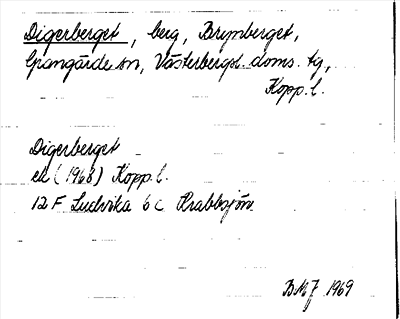 Digerberget, berg, Brynberget,
Grangärde sn, Västerbergsl. doms. tg,
Kopp. l.
Digerberget
ek (1968) Kopp. l.
12 F Ludvika 6 c Krabbsjön
1969